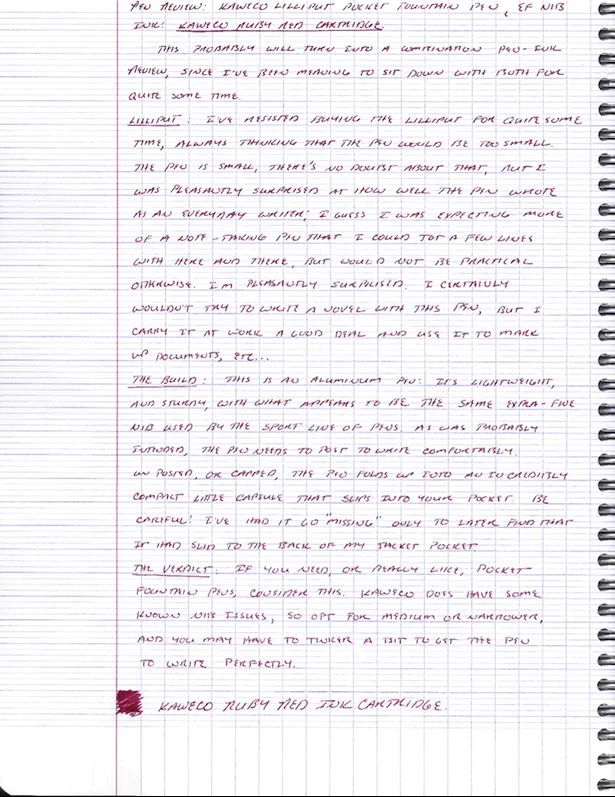 PEN REVIEW: KAWECO LILLIPUT POCKET FOUNTAIN PEN, EF NIB
INK: KAWECO RUBY RED CARTRIDGE.
THIS PROBABLY WILL TURN INTO A COMBINATION PEN-INK
REVIEW, SINCE I'VE BEEN MEANING TO SIT DOWN WITH BOTH FOR
QUITE SOME TIME.
LILLIPUT: I'VE RESISTED BUYING THE LILLIPUT FOR QUITE SOME
TIME, ALWAYS THINKING THAT THE PEN WOULD BE TOO SMALL.
THE PEN IS SMALL, THERE'S NO DOUBT ABOUT THAT, BUT I
WAS PLEASANTLY SURPRISED AT HOW WELL THE PEN WROTE
AS AN EVERYDAY WRITER; I GUESS I WAS EXPECTING MORE
OF A NOTE-TAKING PEN THAT I COULD JOT A FEW LINES
WITH HERE AND THERE, BUT WOULD NOT BE PRACTICAL
OTHERWISE. I'M PLEASANTLY SURPRISED. I CERTAINLY
WOULDN'T TRY TO WRITE A NOVEL WITH THIS PEN, BUT I
CARRY IT AT WORK A GOOD DEAL AND USE IT TO MARK
UP DOCUMENTS, ETC...
THE BUILD: THIS IS AN ALUMINUM PEN: ITS LIGHTWEIGHT,
AND STURDY, WITH WHAT APPEARS TO BE THE SAME EXTRA-FINE
NIB USED BY THE SPORT LINE OF PENS. AS WAS PROBABLY
INTENDED, THE PEN NEEDS TO POST TO WRITE COMFORTABLY.
UNPOSTED, OR CAPPED, THE PEN FOLDS UP INTO AN INCREDIBLY
COMPACT LITTLE CAPSULE THAT SLIPS INTO YOUR POCKET. BE
CAREFUL! I'VE HAD IT GO "MISSING" ONLY TO LATER FIND THAT
IT HAD SLID TO THE BACK OF MY JACKET POCKET
THE VERDICT: IF YOU NEED, OR REALLY LIKE, POCKET
FOUNTAIN PENS, CONSIDER THIS. KAWECO DOES HAVE SOME
KNOWN NIB ISSUES, SO OPT FOR MEDIUM OR NARROWER,
AND YOU MAY HAVE TO TINKER A BIT TO GET THE PEN
TO WRITE PERFECTLY.
KAWECO RUBY RED INK CARTRIDGE.